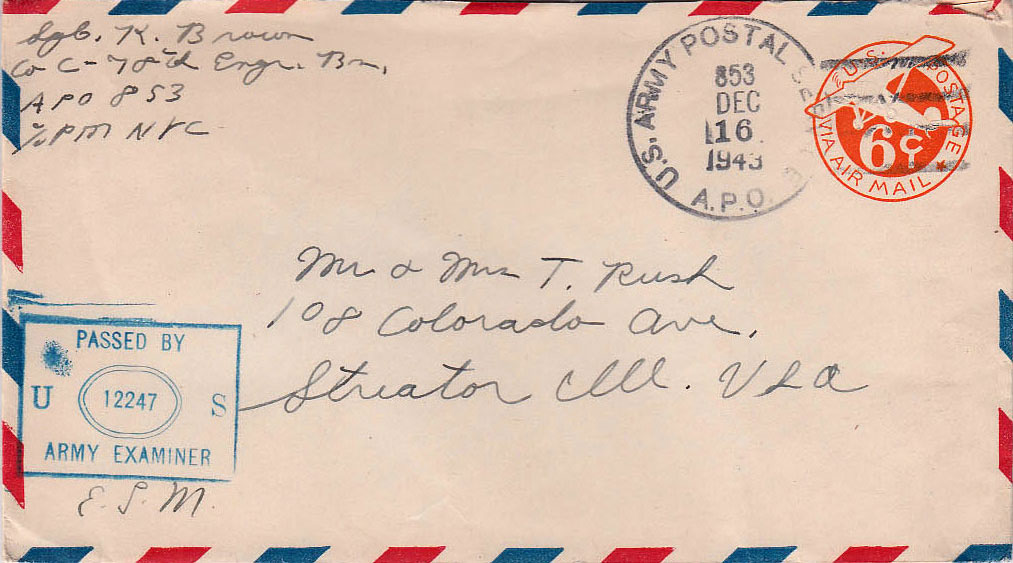 Sgt. K. Brown
Co C - 78th Engr. Bn,
APO 853
℅ PM NYC
U.S. ARMY POSTAL
853
DEC
16
1943
A.P.O.
U.S. POSTAGE
6¢
VIA AIR MAIL
Mr & Mrs T. Rush
108 Colorado Ave,
Streator Ill. USA
PASSED BY
U 12247 S
ARMY EXAMINER
E.S.M.